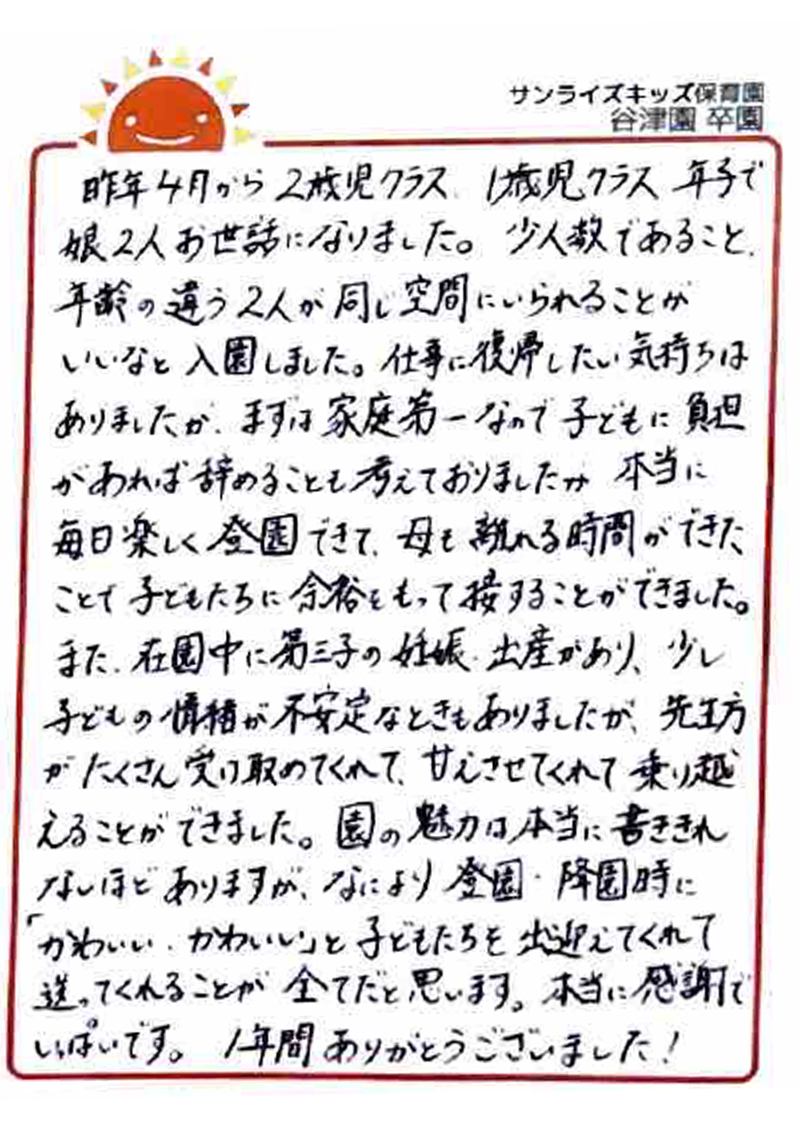 サンライズキッズ保育園
谷津園 卒園
昨年4月から2歳児クラス、1歳児クラス 年子で
娘2人お世話になりました。少人数であること、
年齢の違う2人が同じ空間にいられることが
いいなと入園しました。仕事に復帰したい気持ちは
ありましたが、まずは家庭第一なので子どもに負担
があれば辞めることも考えておりましたが 本当に
毎日楽しく登園できて、母も離れる時間ができた
ことで子どもたちに余裕をもって接することができました。
また、在園中に第三子の妊娠・出産があり、少し
子どもの情緒が不安定なときもありましたが、先生方
がたくさん受け取めてくれて、甘えさせてくれて乗り越
えることができました。園の魅力は本当に書ききれ
ないほどありますが、なにより登園・降園時に
「かわいい、かわいい」と子どもたちを出迎えてくれて
送ってくれることが全てだと思います。本当に感謝で
いっぱいです。1年間ありがとうございました!